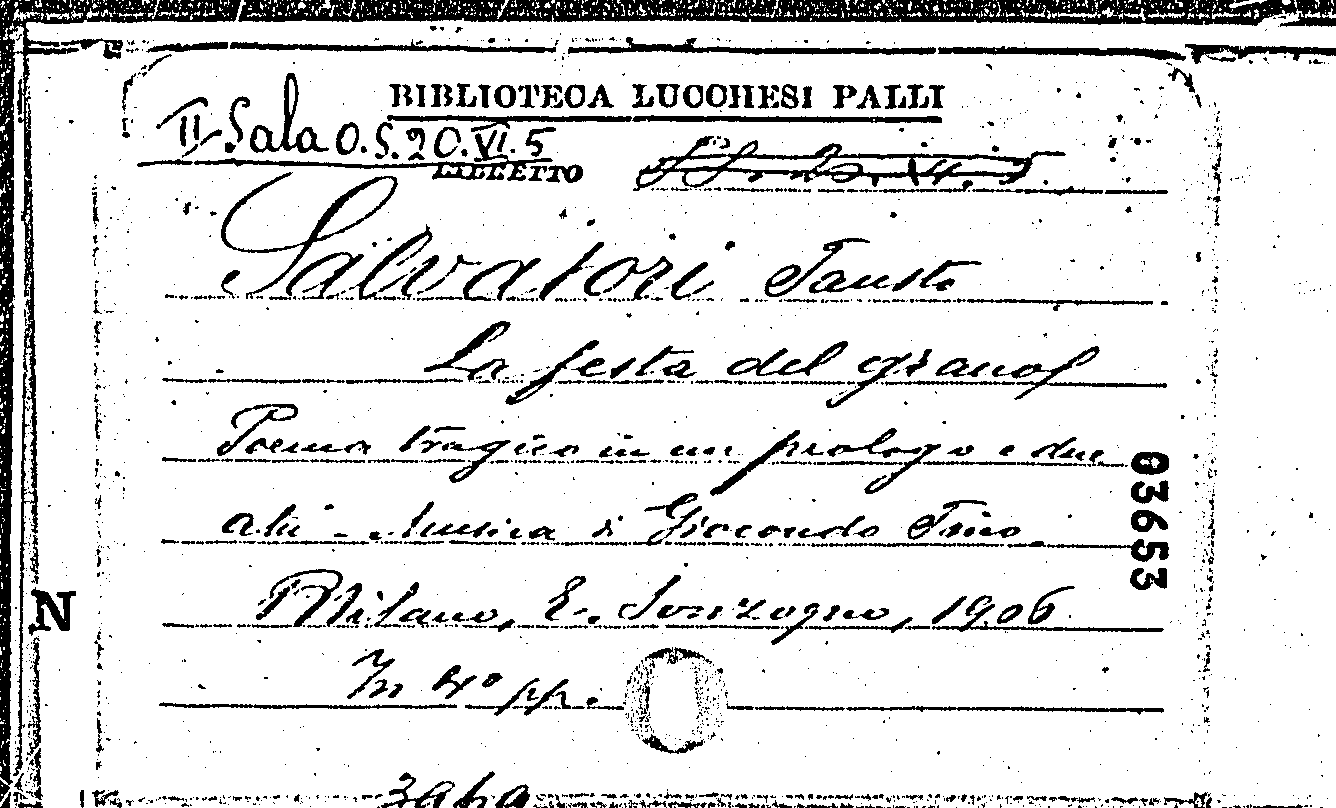 BIBLIOTECA LUCCHESI PALLI
II Sala O.S.20.VI.5
LIBRETTO
Salvatori Fausto
La festa del grano
Poema tragico in un prologo e due
atti - Musica di Giocondo Fino.
Milano, E. Sonzogno, 1906
In 4º pp.
03653
N